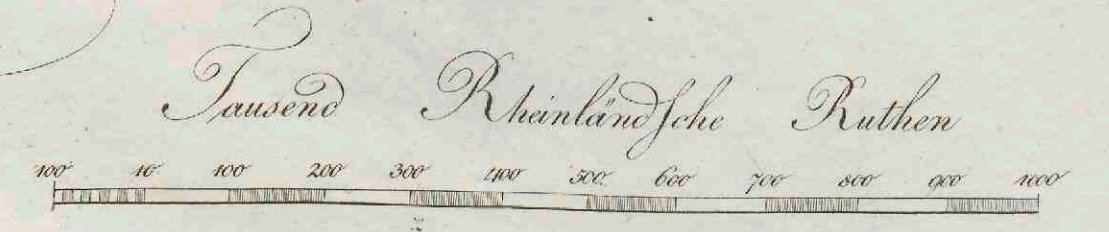 Tausend Rheinländsche Ruthen
100 10 100 200 300 400 500 600 700 800 900 1000